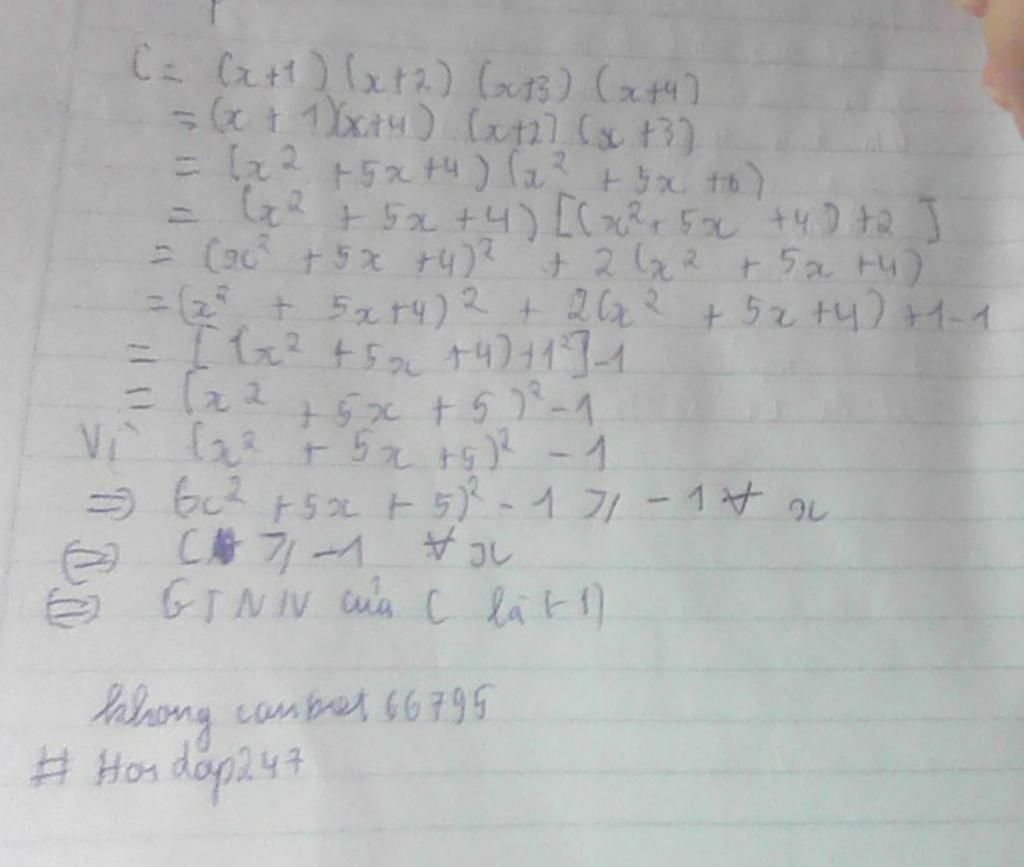 C = (x+1) (x+2) (x+3) (x+4)
= (x + 1)(x+4) (x+2) (x +3)
= (x² + 5x+4) (x² + 5x +6)
= (x² + 5x +4) [(x²+5x +4) +2]
= (x² + 5x +4)² + 2(x² + 5x +4)
= (x² + 5x+4)² + 2(x² + 5x+4) +1-1
= [(x² +5x +4)+1²]-1
= (x² +5x + 5)² -1
Vì (x² + 5x +5)² - 1
=> (x² +5x + 5)² - 1 ⩾ -1 ∀ x
(=) C ⩾ -1 ∀ x
(=) GTNN của C là (-1)
khong can biet 66795
# Hoi dap247